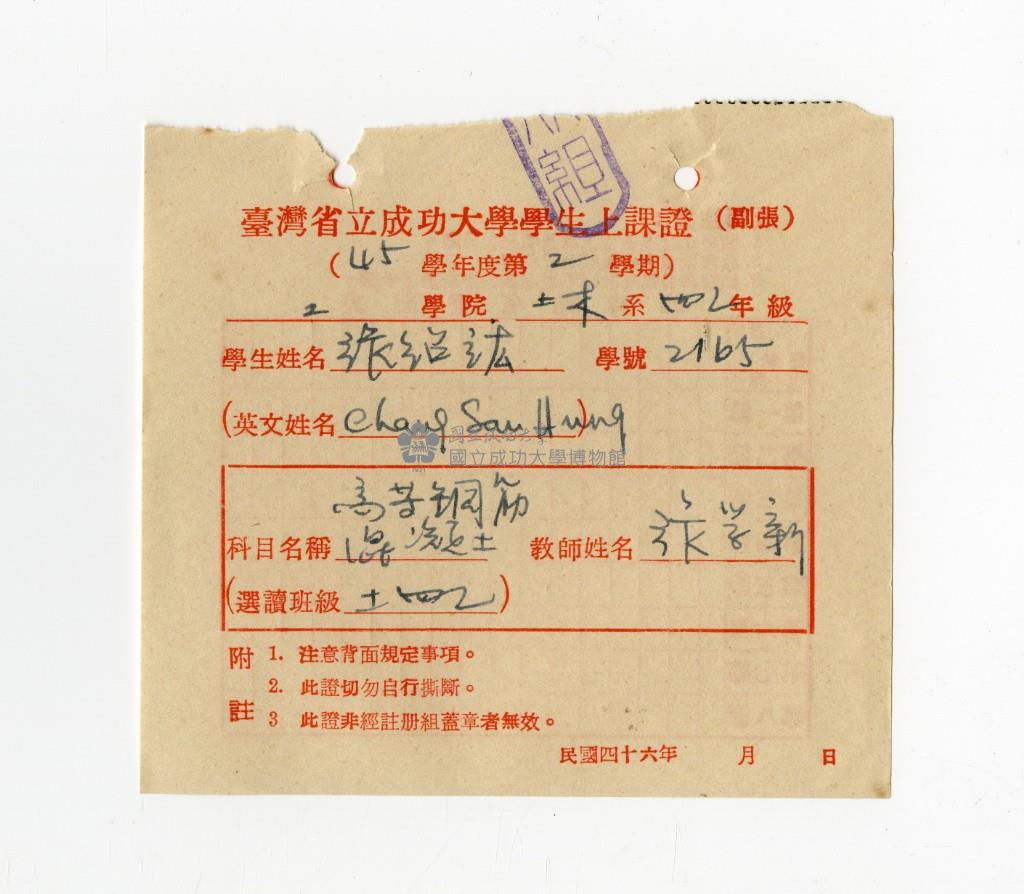 臺灣省立成功大學學生上課證 (副張)
(45 學年度第 2 學期)
工 學院 土木 系 四乙 年級
學生姓名 張紹鋐 學號 2165
(英文姓名 Chang Sau Hung)
國立成功大學博物館
高等鋼筋
科目名稱 混凝土 教師姓名 张学新
(選讀班級 土四乙)
附註
1. 注意背面規定事項。
2. 此證切勿自行撕斷。
3 此證非經註册組蓋章者無效。
民國四十六年 月 日